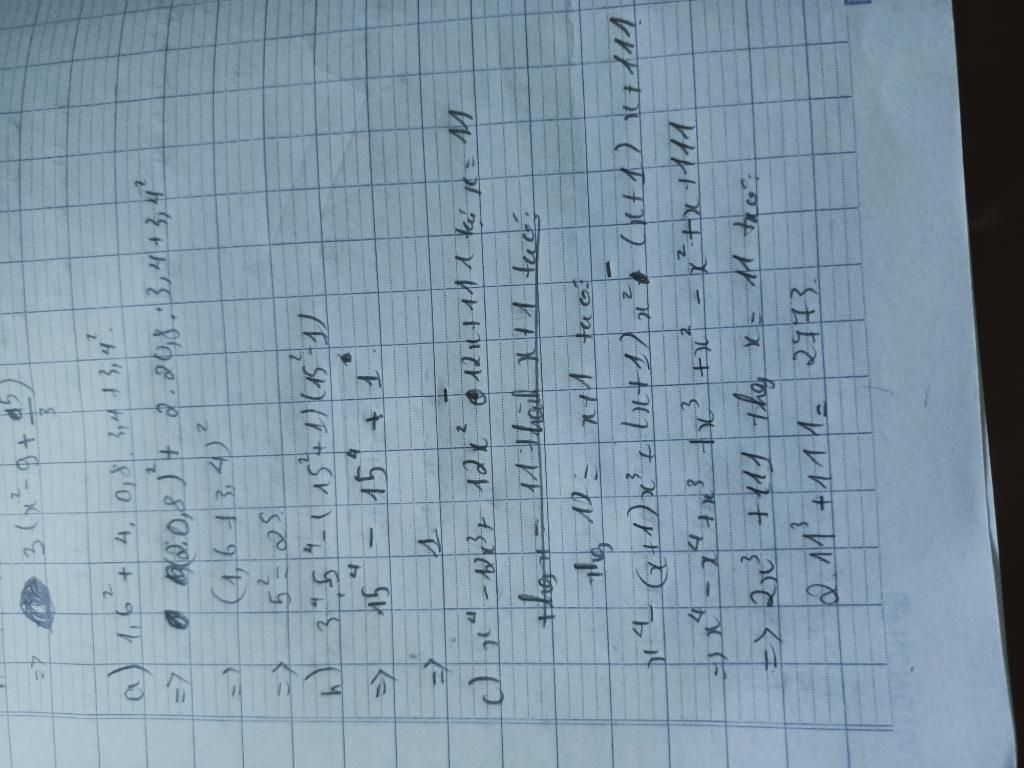 => 3 (x² - 9 + 25/3)
a) 1,6² + 4, 0,8. 3,4 + 3,4²
=> (2 0,8)² + 2. 2 0,8. 3,4 + 3,4²
=> (1,6 + 3,4)²
=> 5² = 25
b) 3⁴. 5⁴ - (15² + 1) (15² - 1)
=> 15⁴ - 15⁴ + 1
=> 1
c) x⁴ - 12x³ + 12x² - 12x + 111 tại x = 11
thay 12 = x + 1 ta có:
x⁴ - (x + 1) x³ + (x + 1) x² - (x + 1) x + 111
=> x⁴ - x⁴ + x³ + x³ + x² - x² + x + 111
=> 2x³ + 111 thay x = 11 ta có:
2. 11³ + 111 = 2773.